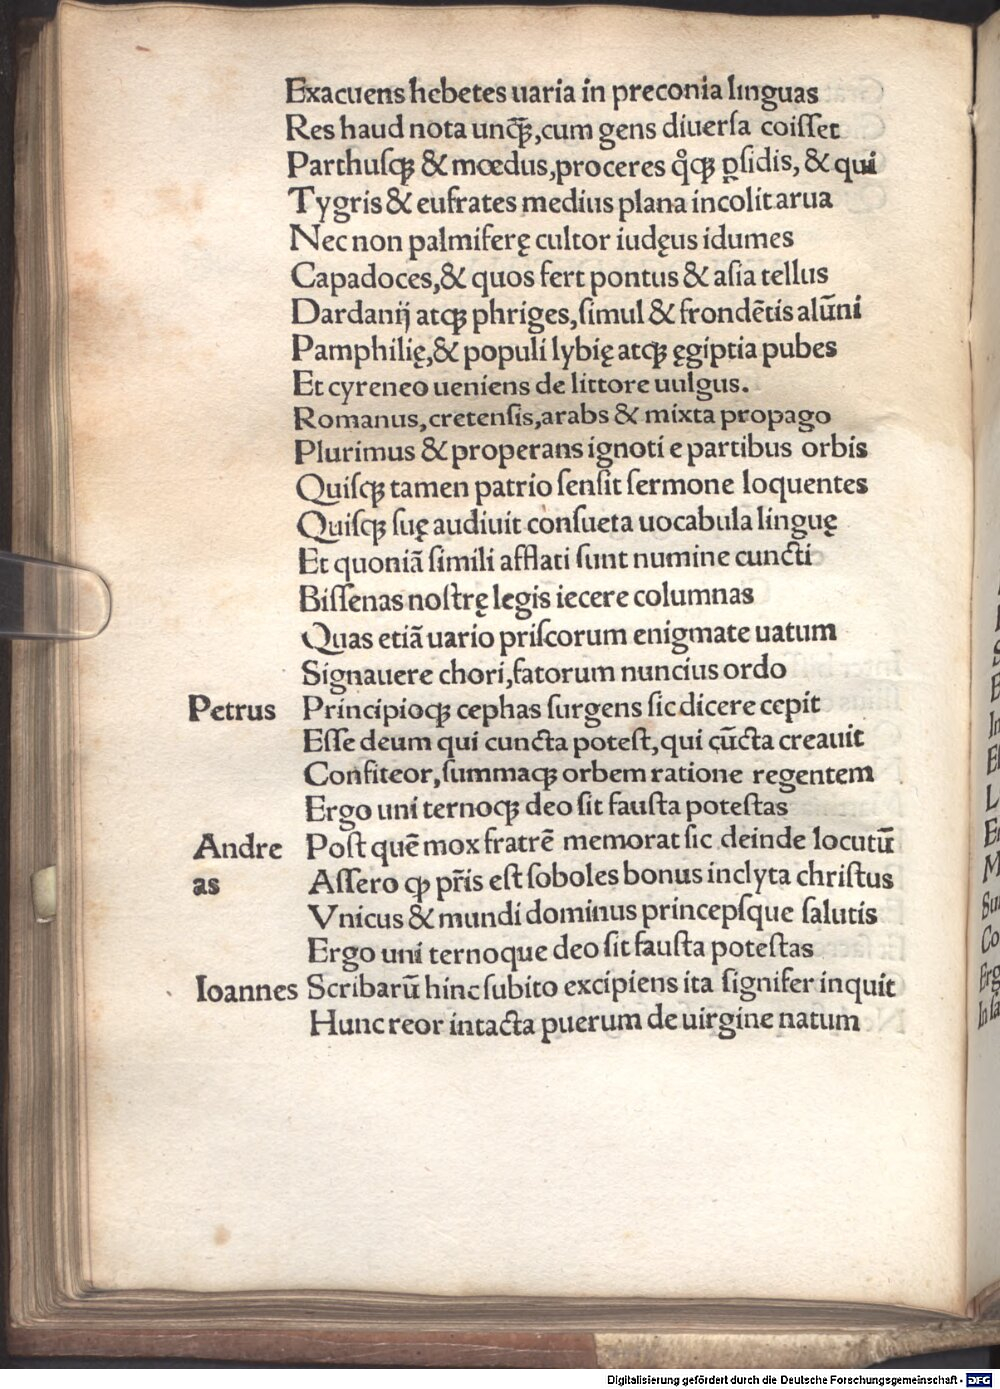 Exacuens hebetes uaria in preconia linguas
Res haud nota unq̃ꝫ,cum gens diuerſa coiſſet
Parthuſqꝫ & mœdus,proceres qͦqꝫ ꝑſidis, & qui
Tygris & eufrates medius plana incolit arua
Nec non palmiferę cultor iudęus idumes
Capadoces,& quos fert pontus & aſia tellus
Dardanij atqꝫ phriges,ſimul & frondẽtis alũni
Pamphilię,& populi lybię atqꝫ ęgiptia pubes
Et cyreneo ueniens de littore uulgus.
Romanus,cretenſis,arabs & mixta propago
Plurimus & properans ignoti e partibus orbis
Quiſqꝫ tamen patrio ſenſit ſermone loquentes
Quiſqꝫ ſuę audiuit conſueta uocabula linguę
Et quoniã ſimili afflati ſunt numine cuncti
Biſſenas noſtrę legis iecere columnas
Quas etiã uario priſcorum enigmate uatum
Signauere chori,fatorum nuncius ordo
Petrus Principioqꝫ cephas ſurgens ſic dicere cepit
Eſſe deum qui cuncta poteſt,qui cũcta creauit
Confiteor,ſummaqꝫ orbem ratione regentem
Ergo uni ternoqꝫ deo ſit fauſta poteſtas
Andre Poſt quẽ mox fratrẽ memorat ſic deinde locutũ
as Aſſero ꝙ pr̃is eſt ſoboles bonus inclyta chriſtus
Vnicus & mundi dominus princepſque ſalutis
Ergo uni ternoque deo ſit fauſta poteſtas
Ioannes Scribarũ hinc ſubito excipiens ita ſignifer inquit
Hunc reor intacta puerum de uirgine natum
Digitalisierung gefördert durch die Deutsche Forschungsgemeinschaft - DFG